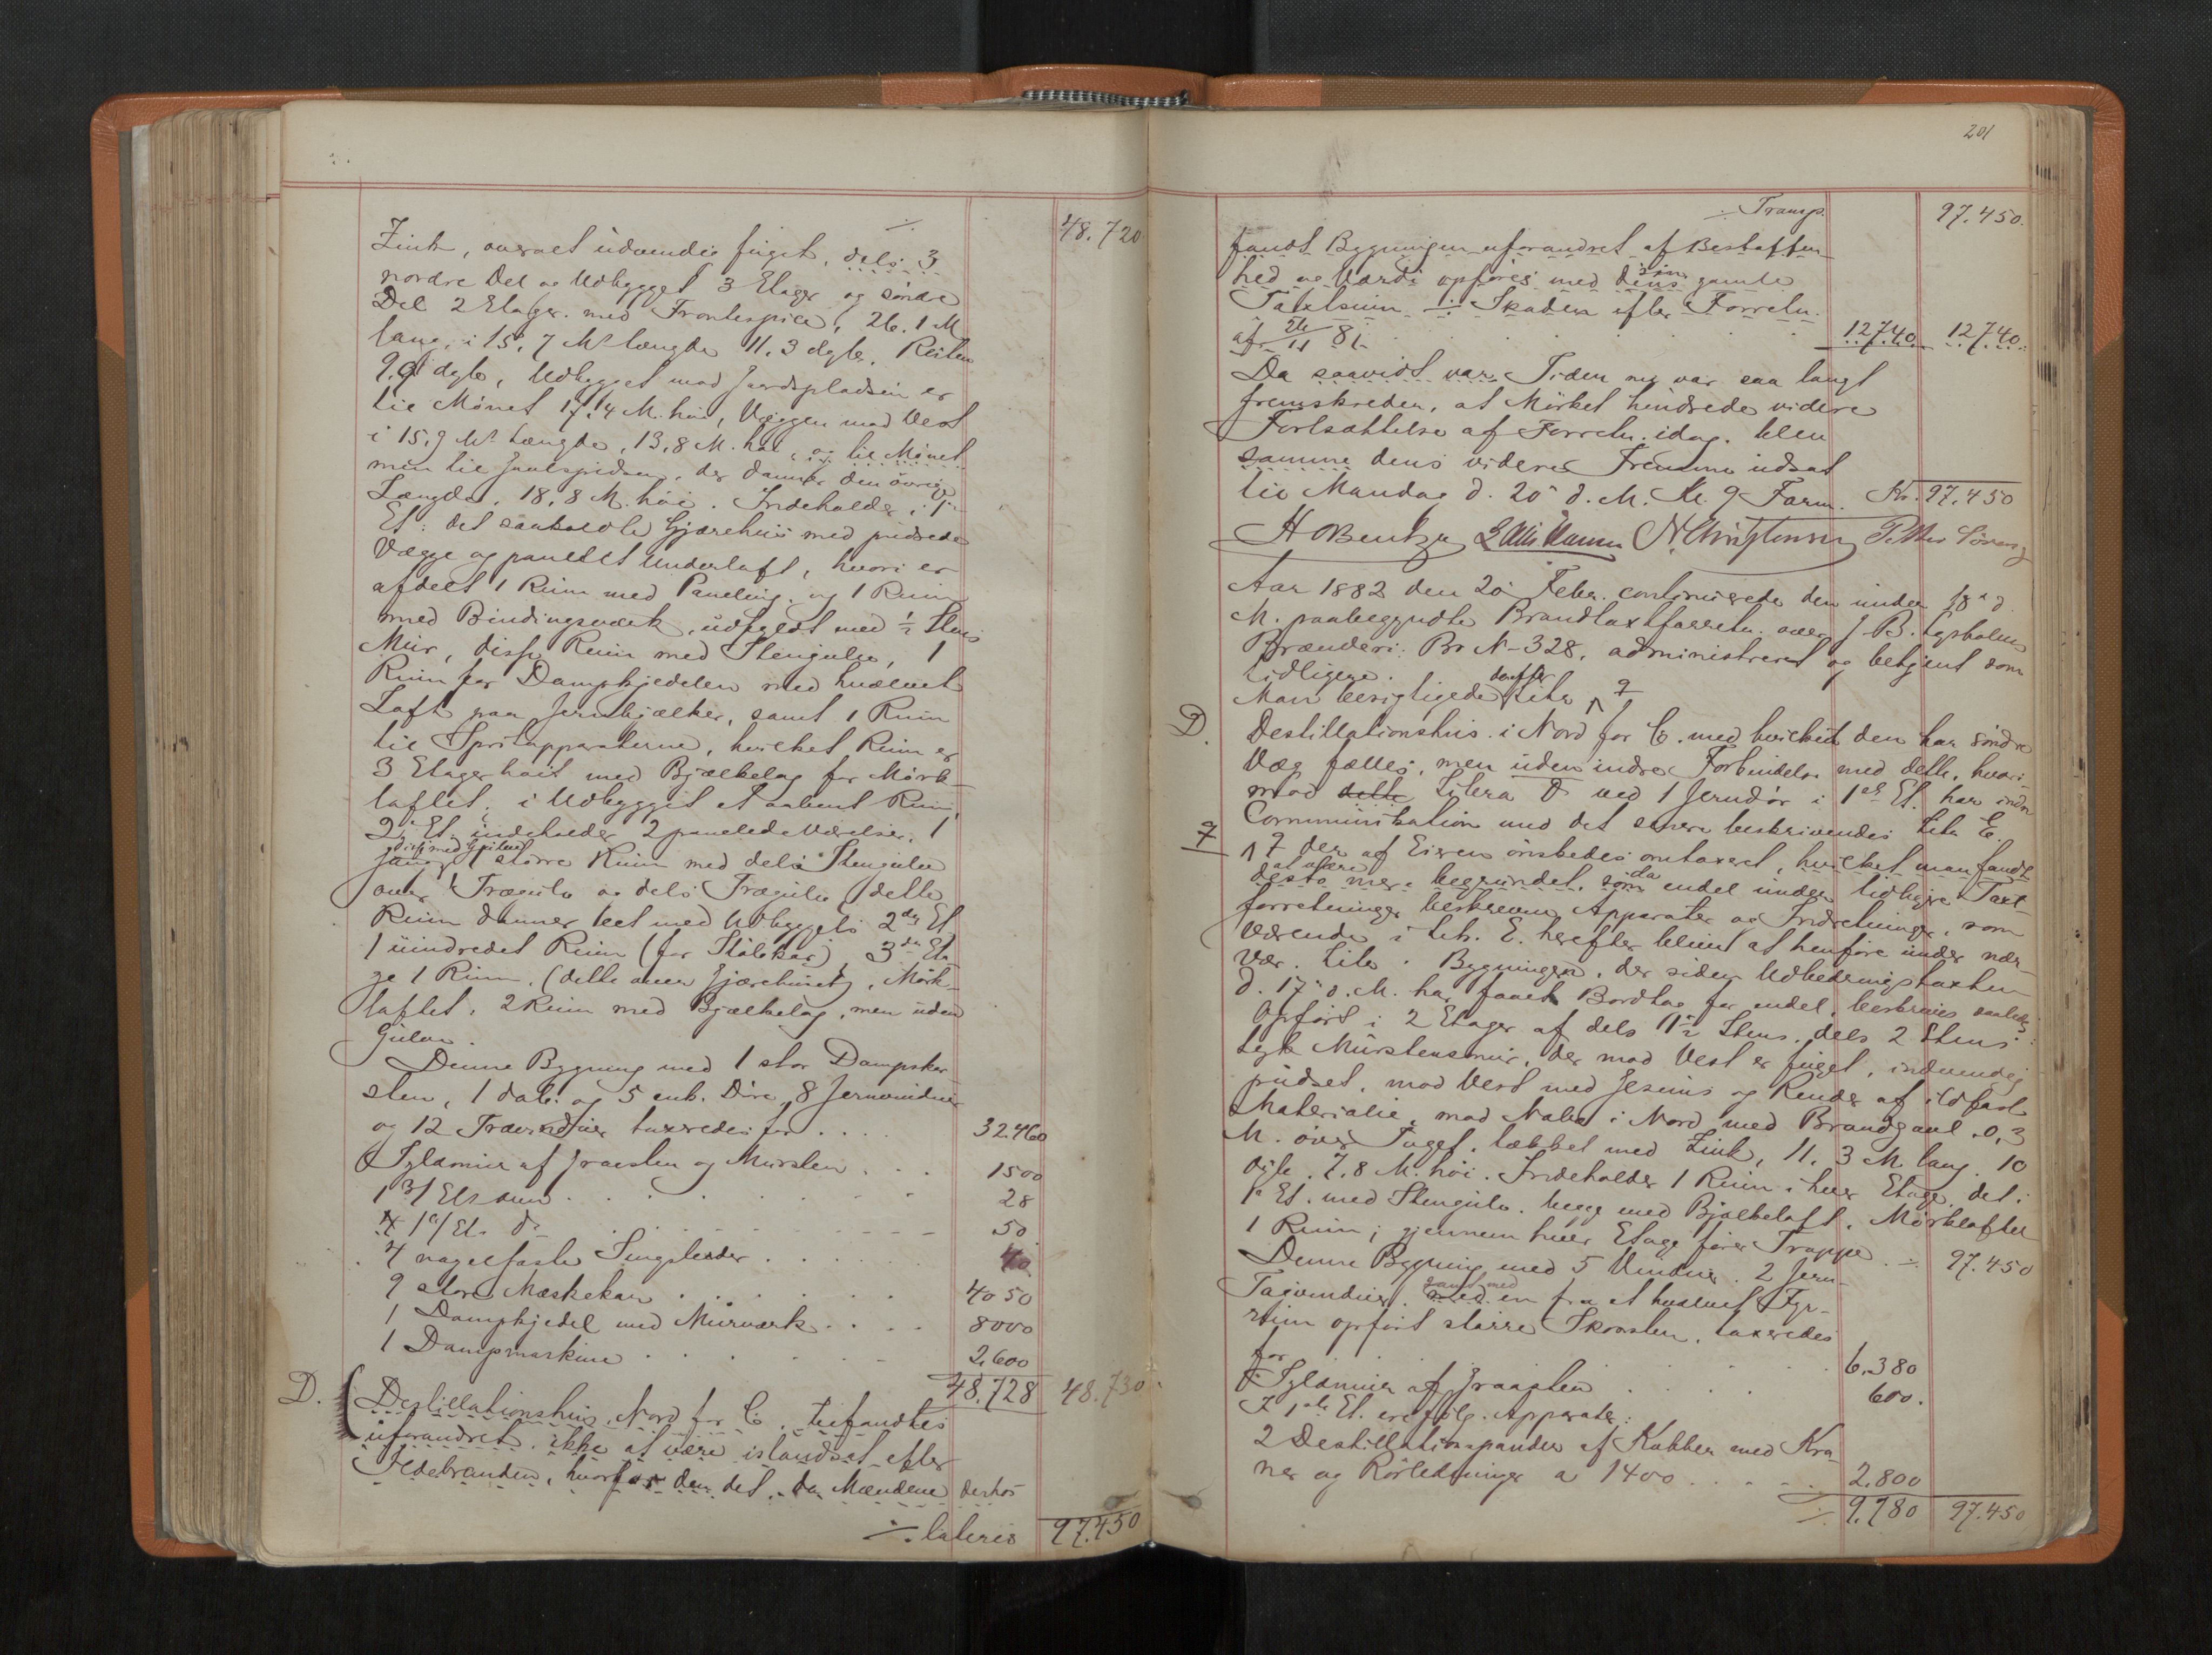 ÷ 48.720
Zink, overalt udvendig fuget, dels 3
nordre Del og Udbygget 3 Etager og søndre
Del 2 Etager med Frontespice, 26.1 M
lang, i 15,7 M længde 11,3 dyb, Resten
9.9 dyb, Udbygget mod Gaardspladsen er
til Mønet 17,4 M. høi, Væggen mod Vest
i 15,9 Mt Længde, 13,8 M. høi, og til Mønet
men til Gavlspidsen, der danner den øvrige
Længde, 18,8 M. høi. Indeholder i 1ste
Et: det saakaldte Gjærehus med pudsede
Vægge og panelet Underloft, hvori er
afdelt 1 Rum med Paneling og 1 Rum
med Bindingsværk, udfyldt med ½ Stens
Mur, disse Rum med Stengulv, 1
Rum for Dampkjedelen med hvælvet
Loft paa Jernbjælker, samt 1 Rum
til Spritapparaterne, hvilket Rum er
3 Etager høit med Bjælkelag for Mørk-
loftet, i Udbygget et aabent Rum,
2den Et. indeholder 2 panelede Værelser, 1
Gang, 1 større Rum med dels Stengulv
over Trægulv og dels Trægulv (dette
Rum danner eet med Udbyggets 2den Et
1 uindredet Rum (for Kølekar), 3die Eta-
ge 1 Rum (dette over Gjærehuset), Mørk-
loftet, 2 Rum med Bjælkelag, men uden
Gulve.
Denne Bygning med 1 stor Dampskor-
sten, 1 dob. og 5 enk. Døre, 8 Jernvinduer
og 12 Trævinduer taxeredes for . . . . 32.460
Syldmur af Graasten og Mursten . . . 1500
1 3/ Etr ovn . . . . . 28
1 2/ Et. do . . . . . 50
4 nagelfaste Sengsteder . . . . . 40
9 store Mæskekar . . . . . 4050
1 Dampkjedel med Murværk . . . . 8000
1 Dampmaskine . . . . . 2,600
48.728 48.730
D. Destillationshus, Nord for C, befandtes
uforandret, ikke at være istandsat efter
Ildebranden, hvorfor den det, da Mændene derhos
÷ lateris 97.450
201
÷ Transp. 97.450.
fandt Bygningen uforandret af Beskaffen-
hed og Værdi opføres med dens sin gamle
Taxtsum ÷ Skaden efter Forretn.
af 26/11 81 . . . . . 12740 12740
Da saavidt var Tiden nu var saa langt
fremskreden, at Mørket hindrede videre
Fortsættelse af Forretn. idag, blev
samme dens videre Fremme udsat
til Mandag d. 20de d. M. Kl. 9 Form. Kr. 97.450
H Bentzen N Christensen Petter Sørensen
Aar 1882 den 20 Febr. continuerede den under 18de d.
M. paabegyndte Brandtaxtforretn. over J. B. Lysholms
Brænderi Br No 328, administreret og betjent som
tidligere.
Man besigtigede derefter Litr
D. Destillationshus i Nord for C. med hvilket den har søndre
Væg fælles, men uden indre Forbindelse med dette, hvori-
mod dette Litera D ved 1 Jerndør i 1ste Et. har indre
Communikation med det senere beskrivendes Litr E.
der af Eieren ønskedes omtaxeret, hvilket man fandt
desto mere at være begrundet, som da endel under tidligere Taxt-
forretninger beskrevne Apparater og Indretninger, som
værende i Litr. E. herefter blivet at henføre under nær-
vær. Litr. Bygningen, der siden Udbedringstaxten
d. 17de d. M. har faaet Bordtag for endel, beskrives saaledes:
Opført i 2 Etager af dels 1½ Stens, dels 2 Stens
tyk Murstensmur, der mod Vest er fuget, indvendig
pudset, mod Vest med Gesims og Render af ildfast
Materiale, mod Nabo i Nord med Brandgavl 0,3
M. over Taget, tækket med Zink, 11,3 M. lang. 10
dyb. 7,8 M. høi. Indeholder 1 Rum i hver Etage, det i
1ste Et. med Stengulv. begge med Bjælkeloft. Mørkloftet
1 Rum; gjennem hver Etage fører Trappe. ÷ 97.450
Denne Bygning med 5 Vinduer, 2 Jern-
Tagvinduer, samt med en fra et hvælvet Fyr-
rum opført større Skorsten, taxeredes
for . . . . . 6.380
Syldmur af Graasten . . . . 600.
I 1ste Et. ere følg. Apparater:
2 Destillationspander af Kobber med Kra-
ner og Rørledninger a 1400 . . . . . 2.800
÷ 9.780 97.450